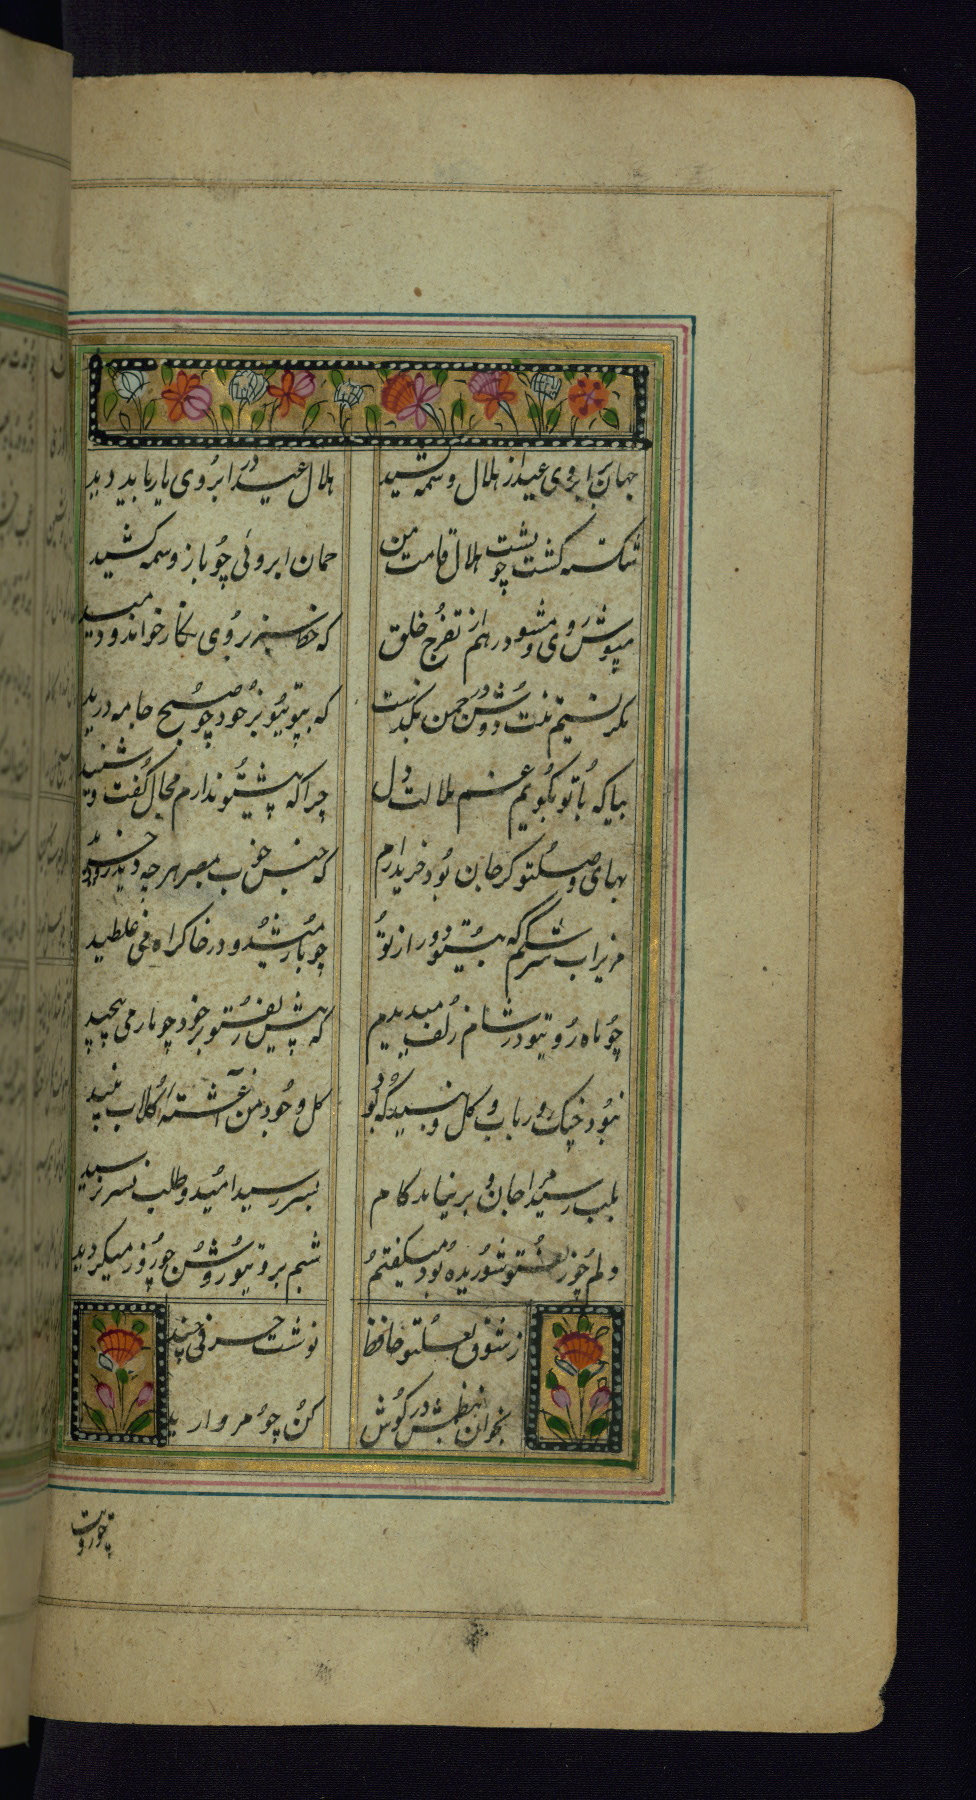 جهان بر ابروی عید از هلال وسمه کشید
هلال عید در ابروی یار باید دید
شکسته گشت چو پشت هلال قامت من
کمان ابروئی چو باز وسمه کشید
مپوش روی و مشو در هم از تفرج خلق
که خط سبز بروی نگار خواند و دمید
مگر نسیم تنت دوش در چمن بگذشت
که بتو بر خود چو صبح جامه درید
بیا که با تو بگویم غم ملالت دل
چرا که پیشتو ندارم مجال گفت و شنید
بهای وصلتو گر جان بود خریدارم
که جنس خوب مبصر بهرچه دید خرید
مریز آب سرشکم که بیتو دور از تو
چو باد میشد و در خاک راه می غلطید
چو ماه رویتو در شام زلف میدیدم
که پیش زلفتو بر خود چو مار می پیچید
نبود چنگ و رباب و گل و نبید که بود
گل وجود من آغشته گلاب نبید
بلب رسید مرا جان و بر نیامد کام
بسر رسید امید و طلب بسر نرسید
دلم چو زلفتو شوریده بود میگفتم
شبم برویتو روشن چو روز میگردید
ز شوق لعلتو حافظ
نوشت حرفی چند
بخوان ز نظمش در گوش
کن چو مروارید
چو رویت